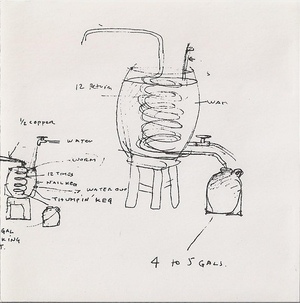 12 return
½ copper
WATER
WORM
12 TIMES
NAIL KEG
WATER OUT
THUMPIN' KEG
GAL
KING
T.
4 TO 5 GALS.